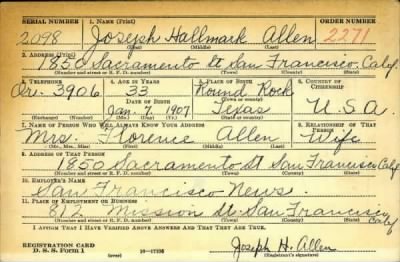 SERIAL NUMBER 1. NAME (Print) ORDER NUMBER
2098 Joseph Hallmark Allen 2271
(First) (Middle) (Last)
2. ADDRESS (Print)
1850 Sacramento St San Francisco, Calif.
(Number and street or R. F. D. number) (Town) (County) (State)
3. TELEPHONE 4. AGE IN YEARS 5. PLACE OF BIRTH 6. COUNTRY OF CITIZENSHIP
Or. 3906 33 Round Rock
DATE OF BIRTH (Town or county)
Jan. 7 1907 Texas U.S.A.
(Exchange) (Number) (Mo.) (Day) (Yr.) (State or country)
7. NAME OF PERSON WHO WILL ALWAYS KNOW YOUR ADDRESS 8. RELATIONSHIP OF THAT PERSON
Mrs. Florence Allen Wife
(Mr., Mrs., Miss) (First) (Middle) (Last)
9. ADDRESS OF THAT PERSON
1850 Sacramento St San Francisco Calif
(Number and street or R. F. D. number) (Town) (County) (State)
10. EMPLOYER'S NAME
San Francisco News.
11. PLACE OF EMPLOYMENT OR BUSINESS
812 Mission St. San Francisco Calif
(Number and street or R. F. D. number) (Town) (County) (State)
I AFFIRM THAT I HAVE VERIFIED ABOVE ANSWERS AND THAT THEY ARE TRUE.
REGISTRATION CARD
D. S. S. FORM 1 (over) Joseph H. Allen
(Registrant's signature)